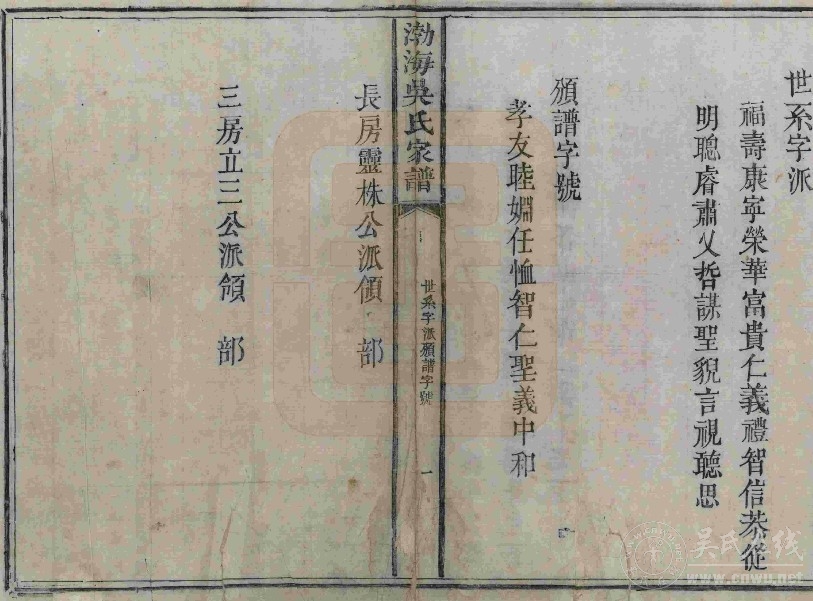 世系字派
福壽康寧榮華富貴仁義禮智信恭從
明聰睿肅乂哲謀聖貌言視聽思
頒譜字號
孝友睦婣任恤智仁聖義中和
渤海吳氏家譜
世系字派頒譜字號
一
長房靈株公派領 部
三房立三公派領 部
吴氏在线
www.cnwu.net